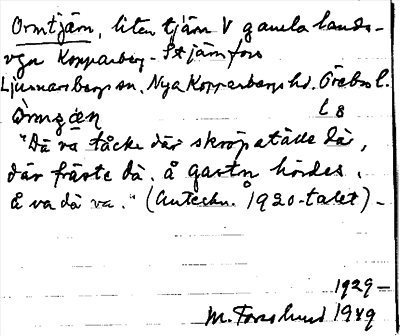 Ormtjärn, liten tjärn V gamla lands-
vgn Kopparberg - Stjärnfors
Ljusnarsbergs sn, Nya Kopparbergs hd. Örebro l.
Örmgæn l 8
"Dä va tåcke där skröpställe dä,
där fräste dä. å gastn hördes.
å va dä va." (Anteckn. å 1920-talet) -
1929 -
M. Forslund 1949